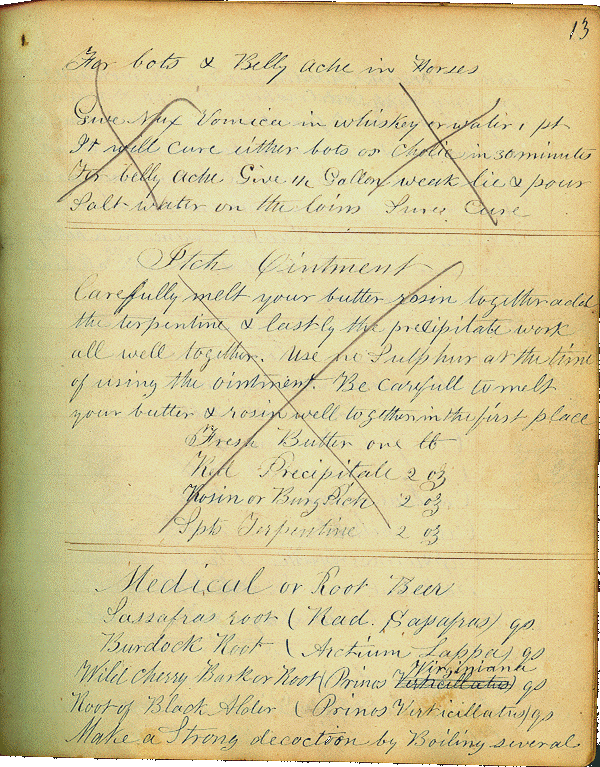 13
For bots & Belly ache in Horses
Give Nux Vomica in whiskey or water 1 pt
It will cure either bots or Cholic in 30 minutes
For belly ache Give 1/2 Gallon weak lie & pour
Salt water on the loins Sure Cure
Itch Ointment
Carefully melt your butter rosin together add
the terpentine & lastly the precipitate work
all well together. Use no Sulphur at the time
of using the ointment. Be carefull to melt
your butter & rosin well together in the first place
Fresh Butter one lb
Red Precipitate 2 oz
Rosin or Burg Pich 2 oz
Spts Terpentine 2 oz
Medical or Root Beer
Sassafras root (Rad. Sasafras) qs
Burdock Root (Arctium Lappa) qs
Virginiana
Wild Cherry Bark or Root (Prinos Virticillatus) qs
Root of Black Alder (Prinos Verticillatus) qs
Make a Strong decoction by Boiling several